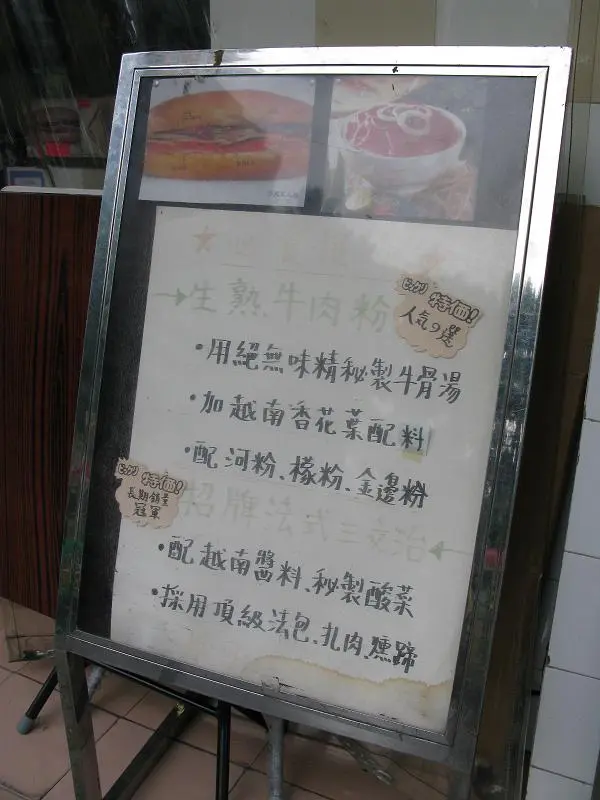 →生熟牛肉粉
ビックリ 特価!
人気の選
·用絕無味精秘製牛骨湯
·加越南香花葉配料
·配河粉、檬粉、金邊粉
ビックリ 特価!
長期銷量
冠軍
招牌法式三文治←
·配越南醬料、秘製酸菜
·採用頂級法包、扎肉、燻蹄